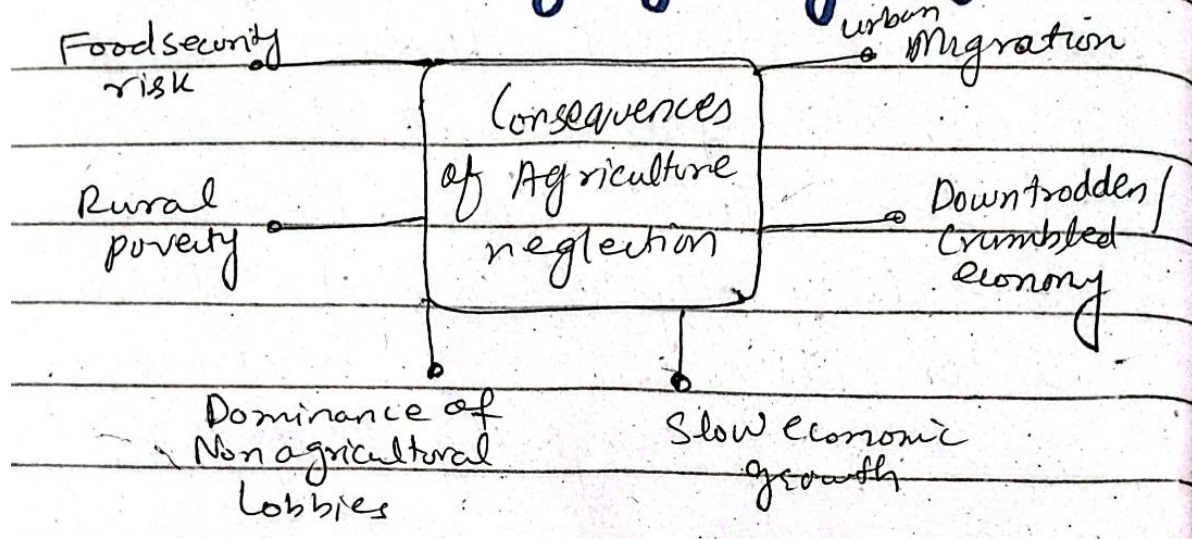 Food security
risk
urban
Migration
Consequences
of Agriculture
neglection
Rural
poverty
Downtrodden/
Crumbled
economy
Dominance of
Non agricultural
Lobbies
Slow economic
growth